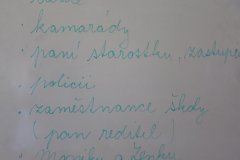 · kamarády
· paní starostku, zastupe
· policii
· zaměstnance školy
( pan ředitel )
· Moniku a Lenku